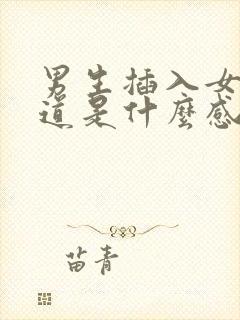 男生插入女
道是什麼感
苗青